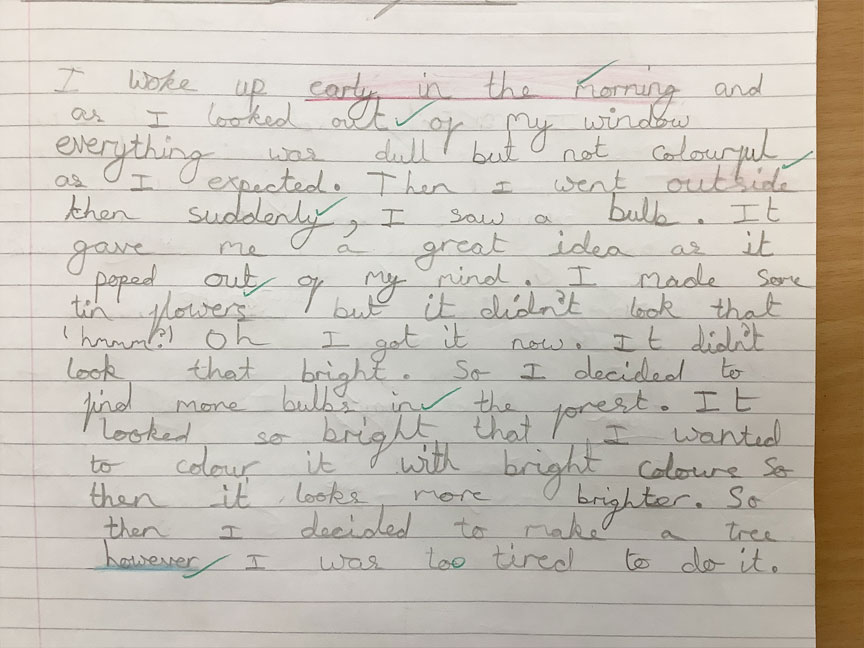 I woke up early in the morning and
as I looked out of my window
everything was dull but not colourful
as I expected. Then I went outside
then suddenly, I saw a bulb. It
gave me a great idea as it
poped out of my mind. I made some
tin flowers but it didn't look that
'hmmm?' Oh I got it now. It didn't
look that bright. So I decided to
find more bulbs in the forest. It
looked so bright that I wanted
to colour it with bright colours so
then it looks more brighter. So
then I decided to make a tree
however I was too tired to do it.